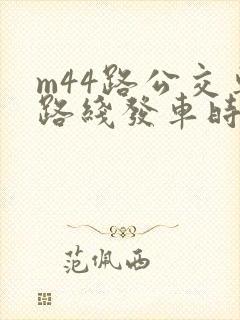 m44路公交
路綫發車時
范佩西